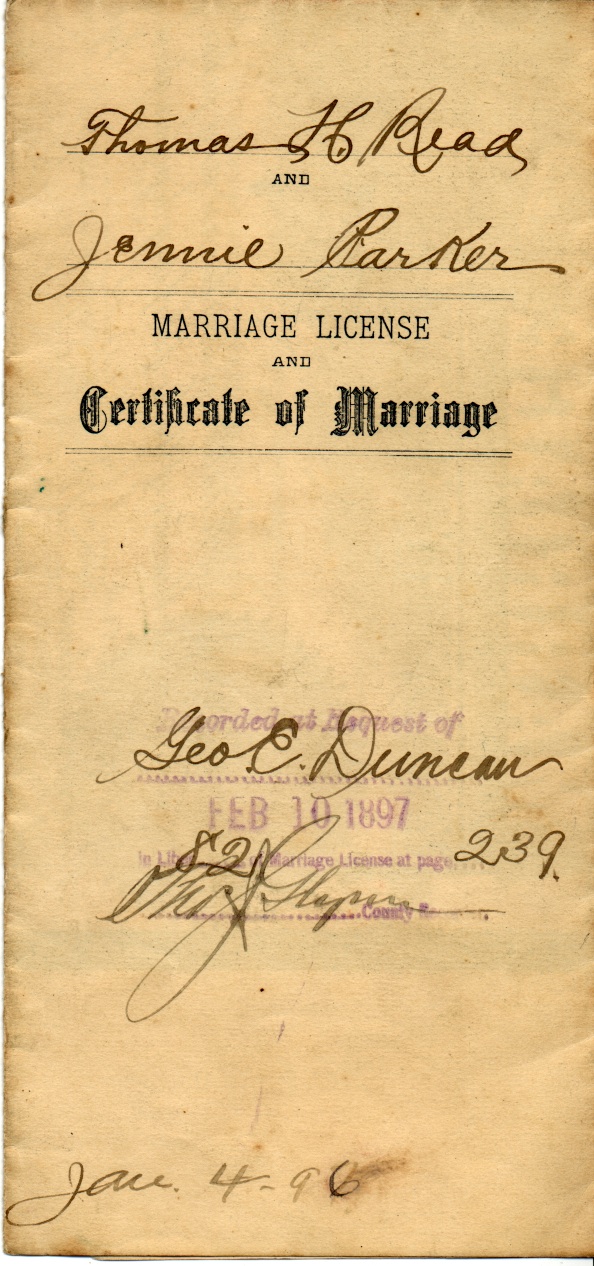 Thomas H. Read
AND
Jennie Parker
MARRIAGE LICENSE
AND
Certificate of Marriage
Recorded at Request of
Geo. E. Duncan
FEB 10 1897
in Liber 82 of Marriage License at page 239.
County Recorder.
Jan. 4-96